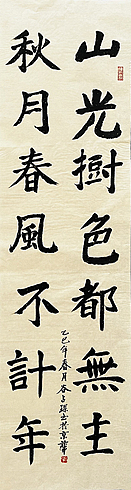 山光樹色都無主
秋月春風不計年
乙巳年春月